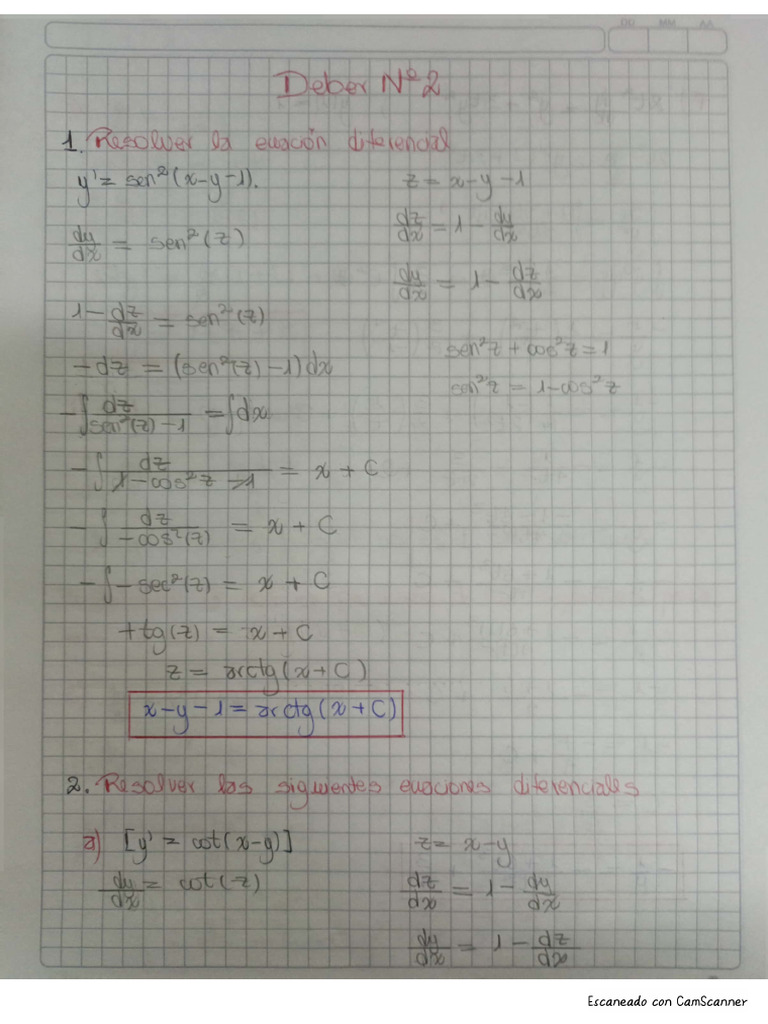 DD MM AA
Deber Nº2
1. Resolver la euación diferencial
y' = sen²(x-y-1). z = x-y-1
dy/dx = sen²(z) dz/dx = 1 - dy/dx
dy/dx = 1 - dz/dx
1 - dz/dx = sen²(z)
sen²z + cos²z = 1
-dz = (sen²(z) -1)dx
sen²z = 1-cos²z
-∫ dz/(sen²(z)-1) = ∫dx
-∫ dz/(1-cos²z-1) = x + C
-∫ dz/(-cos²(z)) = x + C
-∫-sec²(z) = x + C
+tg(z) = x + C
z = arctg(x+C)
x-y-1 = arctg(x+C)
2. Resolver las siguientes euaciones diferenciales
a) [y' = cot(x-y)] z = x-y
dy/dx = cot(z) dz/dx = 1 - dy/dx
dy/dx = 1 - dz/dx
Escaneado con CamScanner